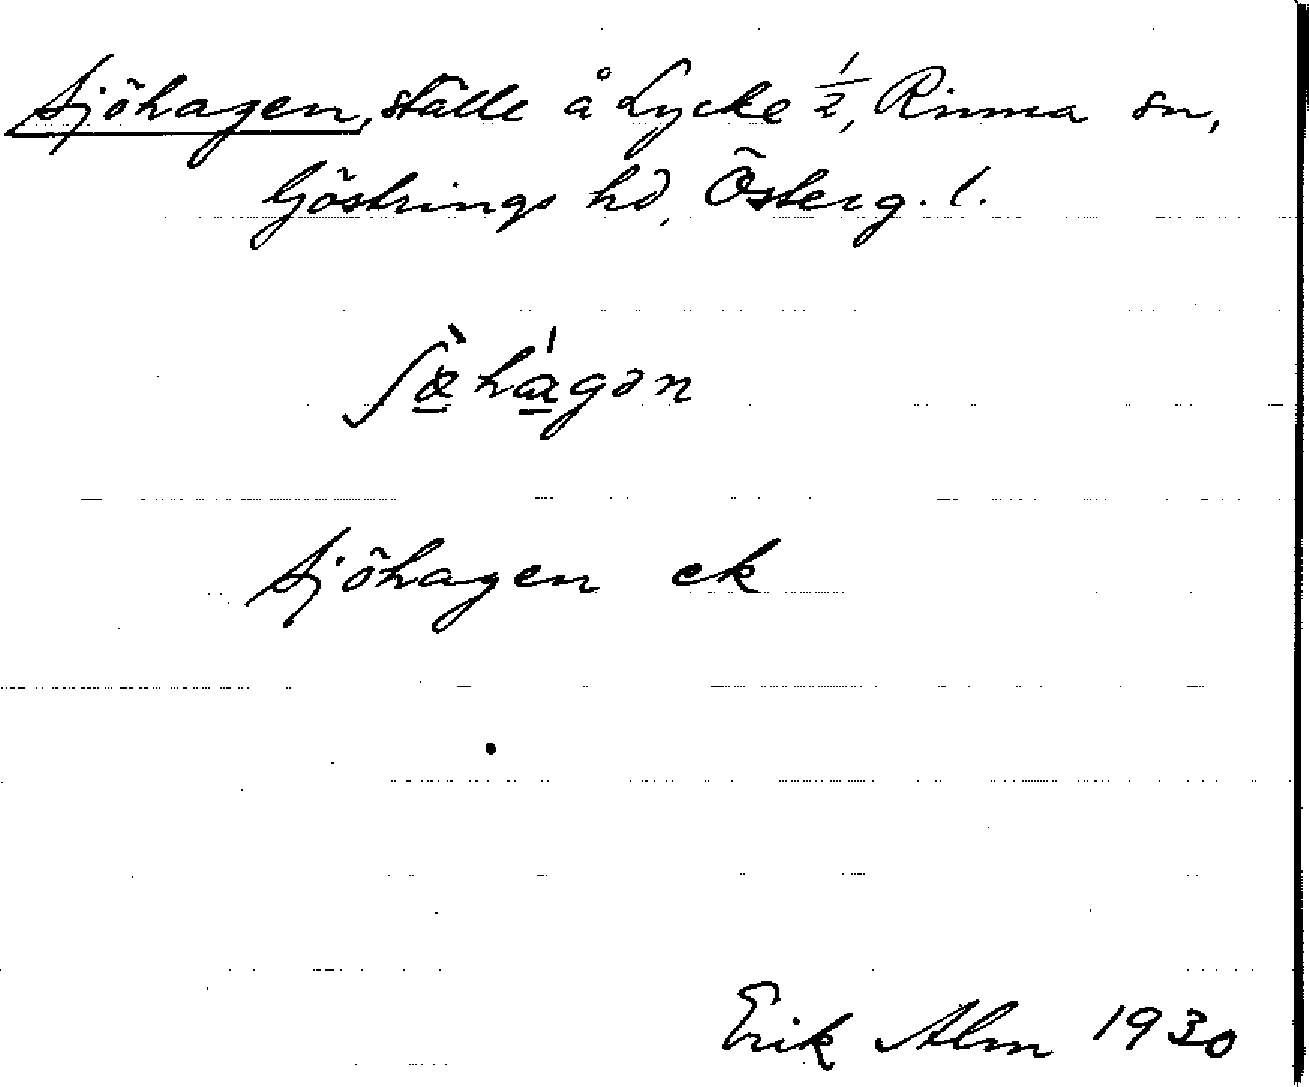 Sjöhagen, ställe å Lycke 1/2, Rinna sn,
Göstrings hd, Österg. l.
ʃæ̀hágən
Sjöhagen ek
Erik Alm 1930